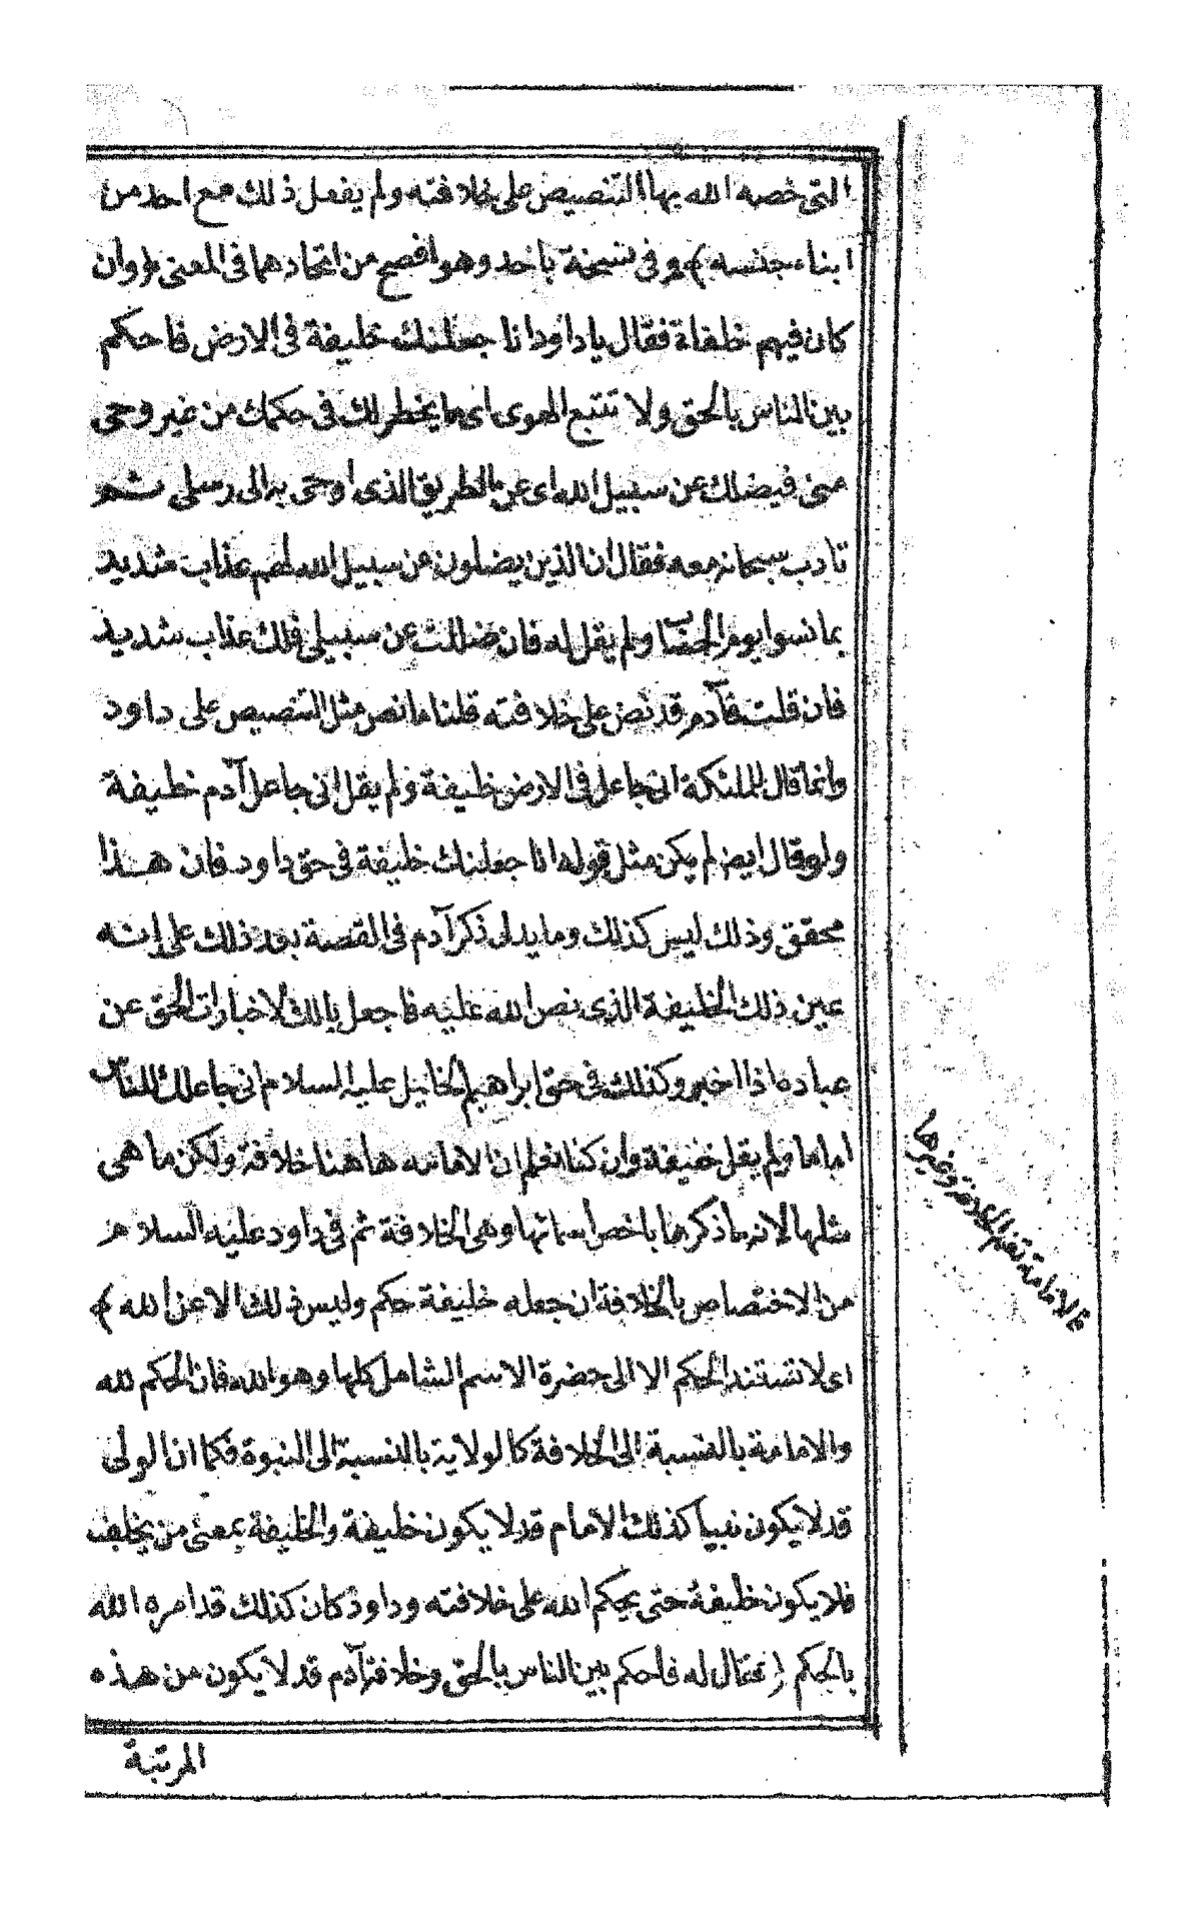 التى خصه الله بها التنصيص على خلافته ولم يفعل ذلك مع احد من
ابناء جنسه ﴾ وفى نسخة باحد وهو افصح من اتحادهما فى المعنى ﴿ وان
كان فيهم خلفاء فقال يا داود انا جعلنك خليفة فى الارض فاحكم
بين الناس بالحق ولا تتبع الهوى اى ما يخطر لك فى حكمك من غير وحى
منى فيضلك عن سبيل الله اى عن الطريق الذى اوحى به الى رسلى ثم
تادب سبحانه معه فقال ان الذين يضلون عن سبيل الله لهم عذاب شديد
بما نسوا يوم الحساب ولم يقل له فان ضللت عن سبيلى فلك عذاب شديد
فان قلت فآدم قد نص على خلافته قلنا ما نص مثل التنصيص على داود
وانما قال للملئكة انى جاعل فى الارض خليفة ولم يقل انى جاعل آدم خليفة
ولو قال ايضا لم يكن مثل قوله انا جعلنك خليفة فى حق داود فان هذا
محقق وذلك ليس كذلك وما يدل ذكر آدم فى القصة بعد ذلك على انه
عين ذلك الخليفة الذى نص الله عليه فاجعل بالك لاخبارات الحق عن
عباده اذا اخبر وكذلك فى حق ابراهيم الخليل عليه السلام انى جاعلك للناس
اماما ولم يقل خليفة وان كنا نعلم ان الامامه هاهنا خلافة ولكن ما هى
مثلها لانه ما ذكرها باخص اسمائها وهى الخلافة ثم فى داود عليه السلام
من الاختصاص بالخلافة ان جعله خليفة حكم وليس ذلك الا عن الله ﴾
اى لا تستند الحكم الا الى حضرة الاسم الشامل كلها وهو الله فان الحكم لله
والامامة بالنسبة الى الخلافة كالولاية بالنسبة الى النبوة فكما ان الولى
قد لا يكون نبيا كذلك الامام قد لا يكون خليفة والخليفة بمعنى من يخلف
فلا يكون خليفة حتى يحكم الله على خلافته وداود كان كذلك قد امره الله
بالحكم ﴿ فقال له فاحكم بين الناس بالحق وخلافة آدم قد لا يكون من هذه
المرتبة
فالامامة تعم الخلافة وغيرها